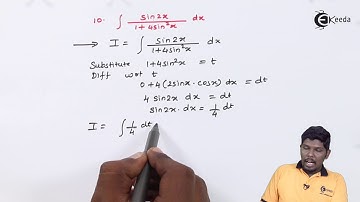 10. ∫ sin2x / 1+4sin²x dx
Ekeeda
→ I = ∫ sin2x / 1+4sin²x dx
Substitute 1+4sin²x = t
Diff wrt t
0+4(2sinx·cosx) dx = dt
4 sin2x dx = dt
sin2x·dx = 1/4 dt
I = ∫ 1/4 dt